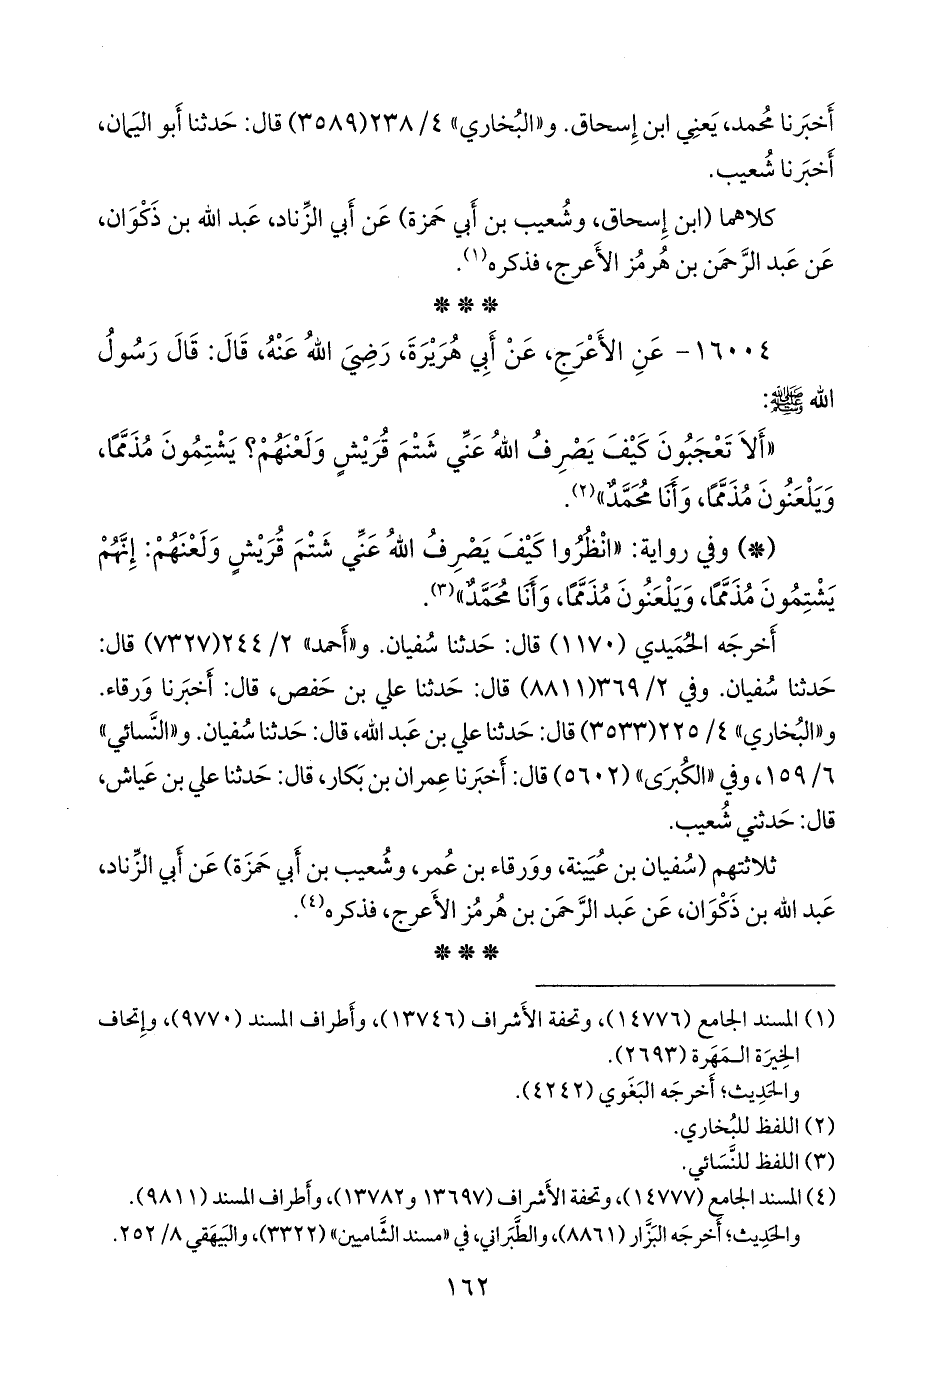 أَخبَرنا مُحمد، يَعنِي ابن إِسحاق. و«البُخاري» ٤/ ٢٣٨(٣٥٨٩) قال: حَدثنا أَبو اليَمان،
أَخبَرنا شُعيب.
كلاهما (ابن إِسحاق، وشُعيب بن أَبي حَمزة) عَن أَبي الزِّناد، عَبد الله بن ذَكْوَان،
عَن عَبد الرَّحمَن بن هُرمُز الأَعرج، فذكره(١).
* * *
١٦٠٠٤- عَنِ الأَعْرَجِ، عَنْ أَبِي هُرَيْرَةَ، رَضِيَ اللهُ عَنْهُ، قَالَ: قَالَ رَسُولُ
الله ﷺ:
«أَلاَ تَعْجَبُونَ كَيْفَ يَصْرِفُ اللهُ عَنِّي شَتْمَ قُرَيْشٍ وَلَعْنَهُمْ؟ يَشْتِمُونَ مُذَمَّمًا،
وَيَلْعَنُونَ مُذَمَّمًا، وَأَنَا مُحَمَّدٌ»(٢).
(*) وفي رواية: «انْظُرُوا كَيْفَ يَصْرِفُ اللهُ عَنِّي شَتْمَ قُرَيْشٍ وَلَعْنَهُمْ: إِنَّهُمْ
يَشْتِمُونَ مُذَمَّمًا، وَيَلْعَنُونَ مُذَمَّمًا، وَأَنَا مُحَمَّدٌ»(٣).
أَخرجَه الحُمَيدي (١١٧٠) قال: حَدثنا سُفيان. و«أَحمد» ٢/ ٢٤٤(٧٣٢٧) قال:
حَدثنا سُفيان. وفي ٢/ ٣٦٩(٨٨١١) قال: حَدثنا علي بن حَفص، قال: أَخبَرنا وَرقاء.
و«البُخاري» ٤/ ٢٢٥(٣٥٣٣) قال: حَدثنا علي بن عَبد الله، قال: حَدثنا سُفيان. و«النَّسائي»
٦/ ١٥٩، وفي «الكُبرَى» (٥٦٠٢) قال: أَخبَرنا عِمران بن بَكار، قال: حَدثنا علي بن عَياش،
قال: حَدثني شُعيب.
ثلاثتهم (سُفيان بن عُيَينة، ووَرقاء بن عُمر، وشُعيب بن أَبي حَمزَة) عَن أَبي الزِّناد،
عَبد الله بن ذَكْوَان، عَن عَبد الرَّحمَن بن هُرمُز الأَعرج، فذكره(٤).
* * *
(١) المسند الجامع (١٤٧٧٦)، وتحفة الأَشراف (١٣٧٤٦)، وأَطراف المسند (٩٧٧٠)، وإِتحاف
الخِيرَة المَهَرة (٢٦٩٣).
والحَدِيث؛ أَخرجَه البَغَوي (٤٢٤٢).
(٢) اللفظ للبُخاري.
(٣) اللفظ للنَّسَائي.
(٤) المسند الجامع (١٤٧٧٧)، وتحفة الأَشراف (١٣٦٩٧ و١٣٧٨٢)، وأَطراف المسند (٩٨١١).
والحَدِيث؛ أَخرجَه البَزَّار (٨٨٦١)، والطَّبَراني، في «مسند الشَّاميين» (٣٣٢٢)، والبَيهَقي ٨/ ٢٥٢.
١٦٢